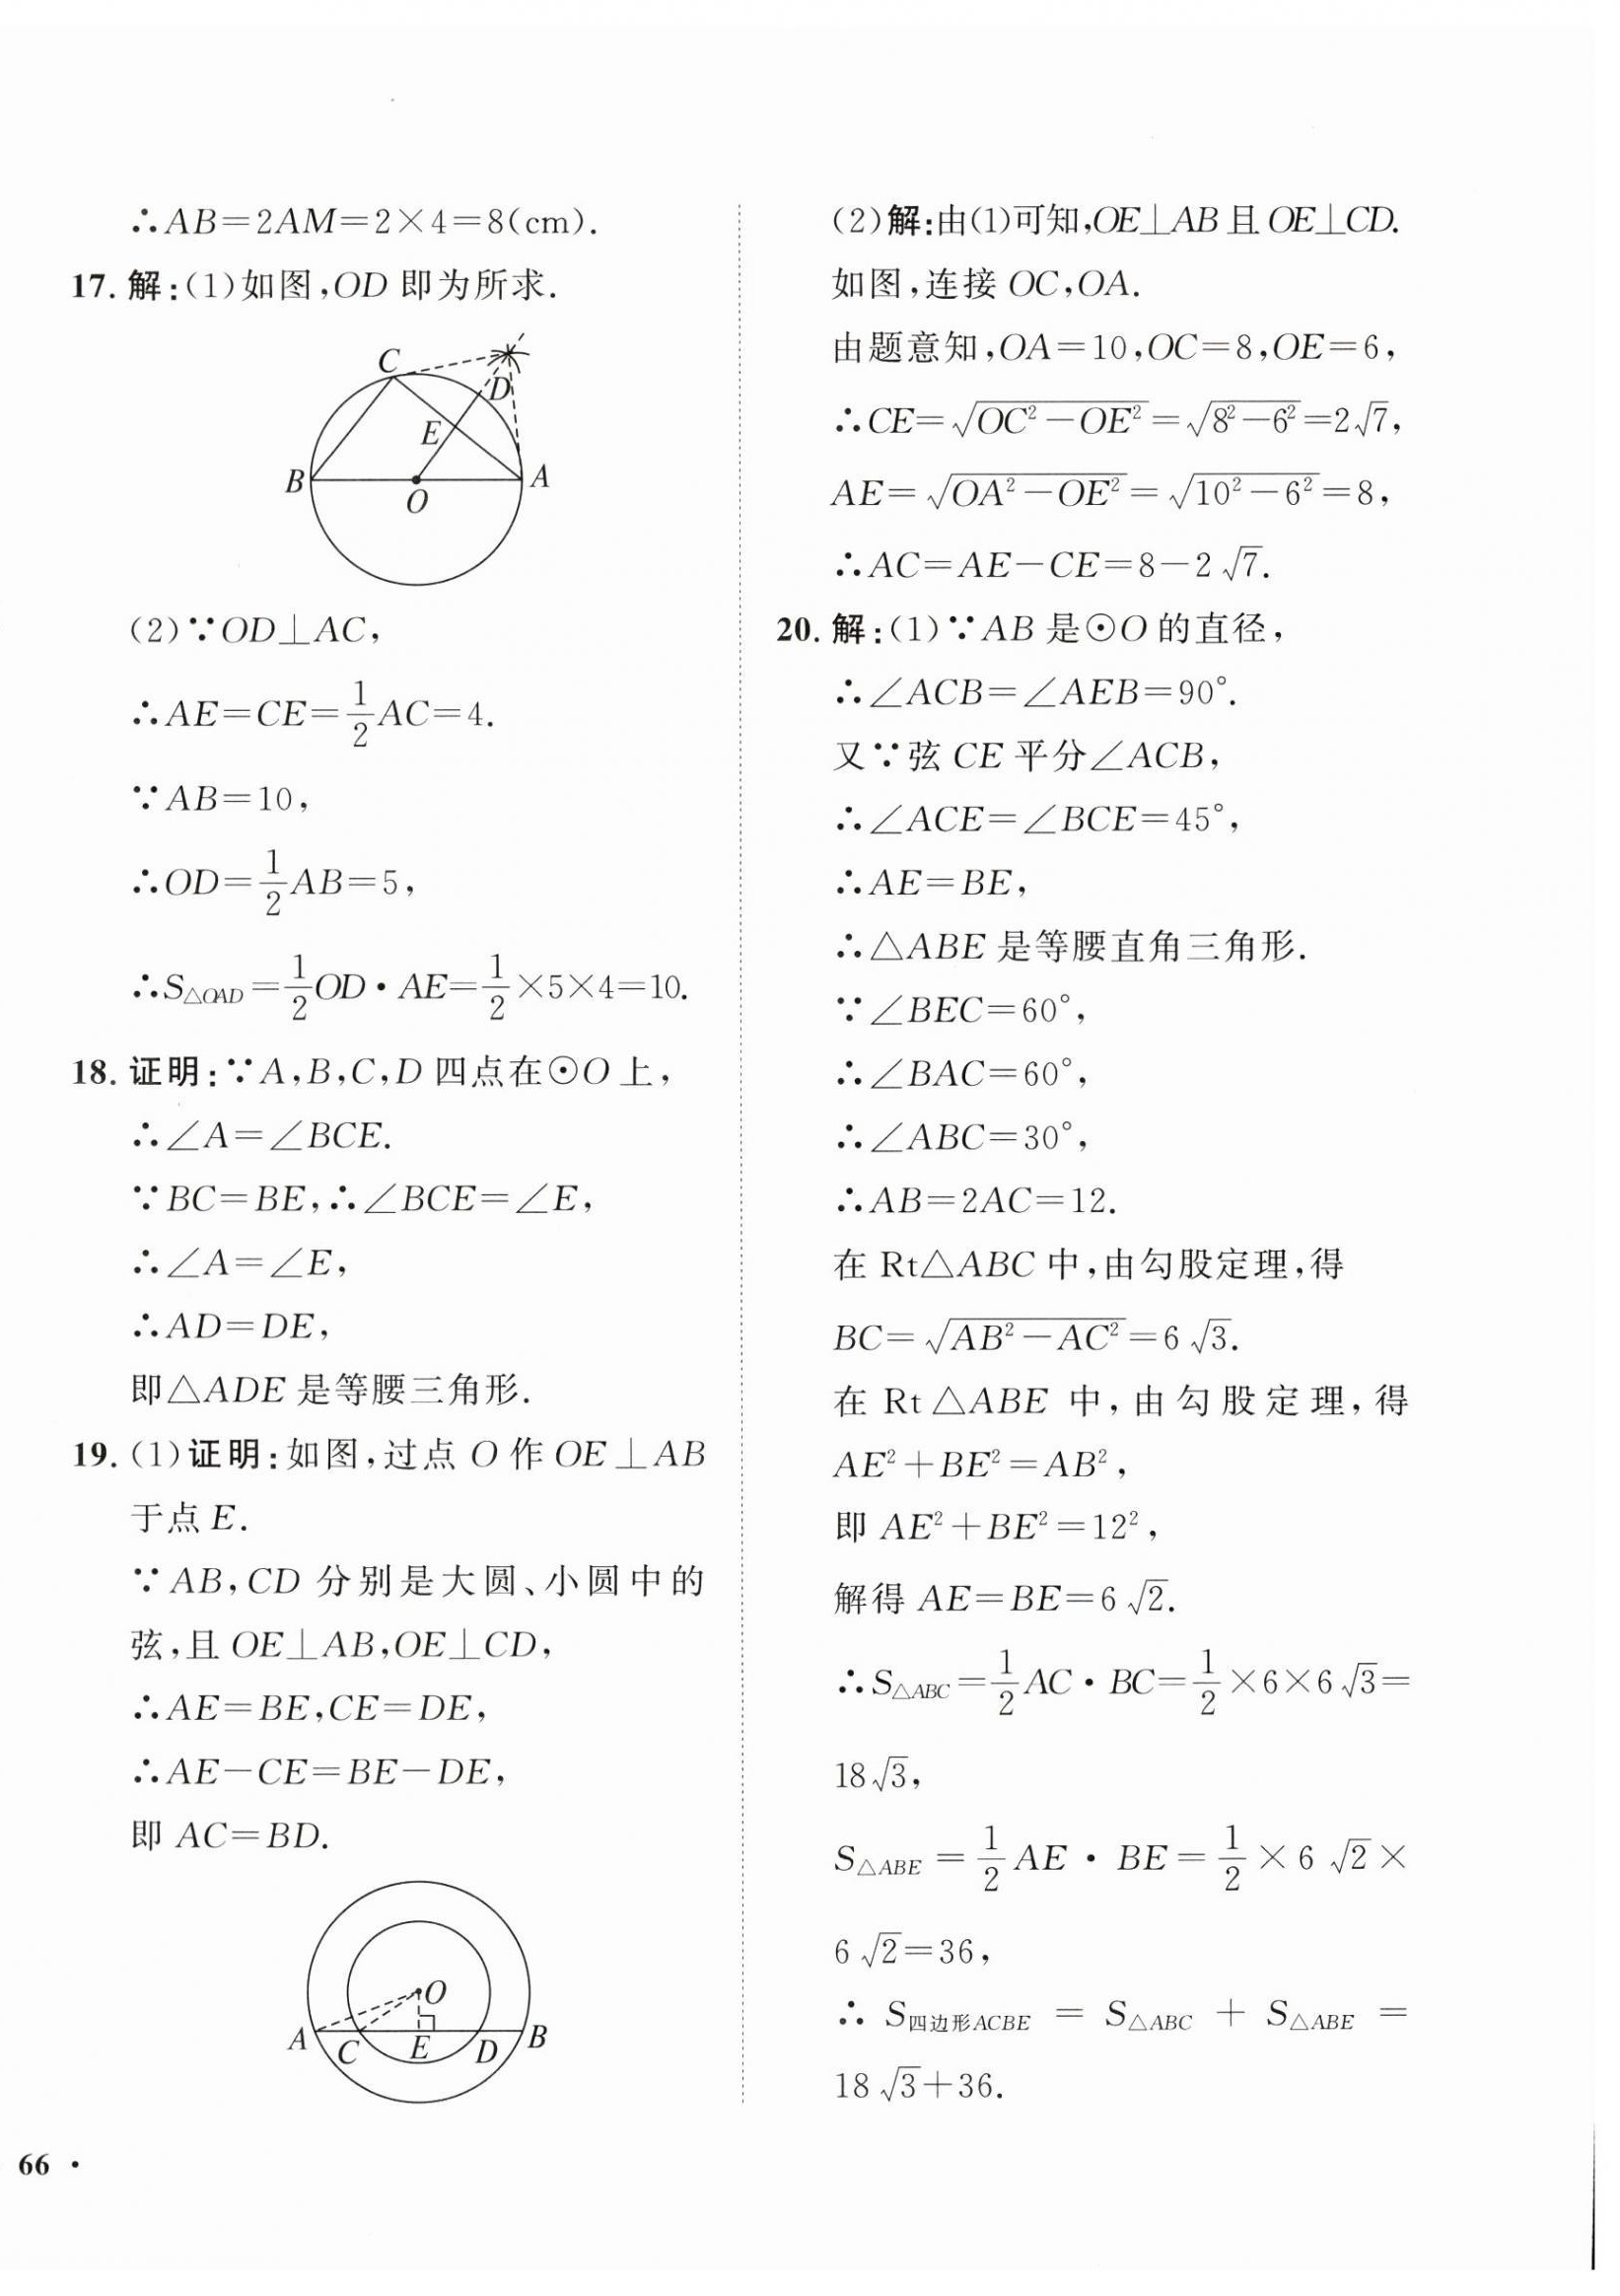 ∴AB=2AM=2×4=8(cm).
17. 解:(1)如图,OD 即为所求.
C
D
E
B
A
O
(2)∵OD⊥AC,
∴AE=CE=\frac{1}{2}AC=4.
∵AB=10,
∴OD=\frac{1}{2}AB=5,
∴S△OAD=\frac{1}{2}OD·AE=\frac{1}{2}×5×4=10.
18. 证明:∵A,B,C,D 四点在⊙O 上,
∴∠A=∠BCE.
∵BC=BE,∴∠BCE=∠E,
∴∠A=∠E,
∴AD=DE,
即△ADE 是等腰三角形.
19. (1)证明:如图,过点 O 作 OE⊥AB
于点 E.
∵AB,CD 分别是大圆、小圆中的
弦,且 OE⊥AB,OE⊥CD,
∴AE=BE,CE=DE,
∴AE−CE=BE−DE,
即 AC=BD.
O
A C E D B
66 ·
(2)解:由(1)可知,OE⊥AB 且 OE⊥CD.
如图,连接 OC,OA.
由题意知,OA=10,OC=8,OE=6,
∴CE=√(OC²−OE²)=√(8²−6²)=2√7,
AE=√(OA²−OE²)=√(10²−6²)=8,
∴AC=AE−CE=8−2√7.
20. 解:(1)∵AB 是⊙O 的直径,
∴∠ACB=∠AEB=90°.
又∵弦 CE 平分∠ACB,
∴∠ACE=∠BCE=45°,
∴AE=BE,
∴△ABE 是等腰直角三角形.
∵∠BEC=60°,
∴∠BAC=60°,
∴∠ABC=30°,
∴AB=2AC=12.
在 Rt△ABC 中,由勾股定理,得
BC=√(AB²−AC²)=6√3.
在 Rt△ABE 中,由勾股定理,得
AE²+BE²=AB²,
即 AE²+BE²=12²,
解得 AE=BE=6√2.
∴S△ABC=\frac{1}{2}AC·BC=\frac{1}{2}×6×6√3=
18√3,
S△ABE=\frac{1}{2}AE·BE=\frac{1}{2}×6√2×
6√2=36,
∴S四边形ACBE=S△ABC+S△ABE=
18√3+36.